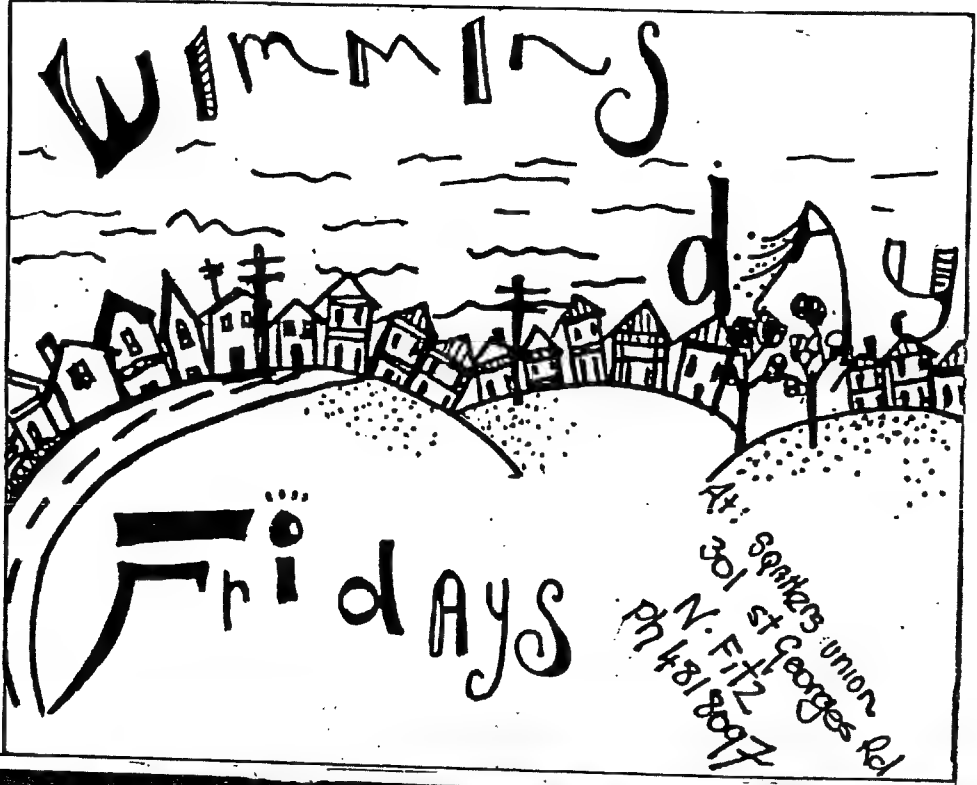 Wimmins
day
Fridays
At: Sqatters union
301 st Georges Rd
N. Fitz
Ph 481 8097